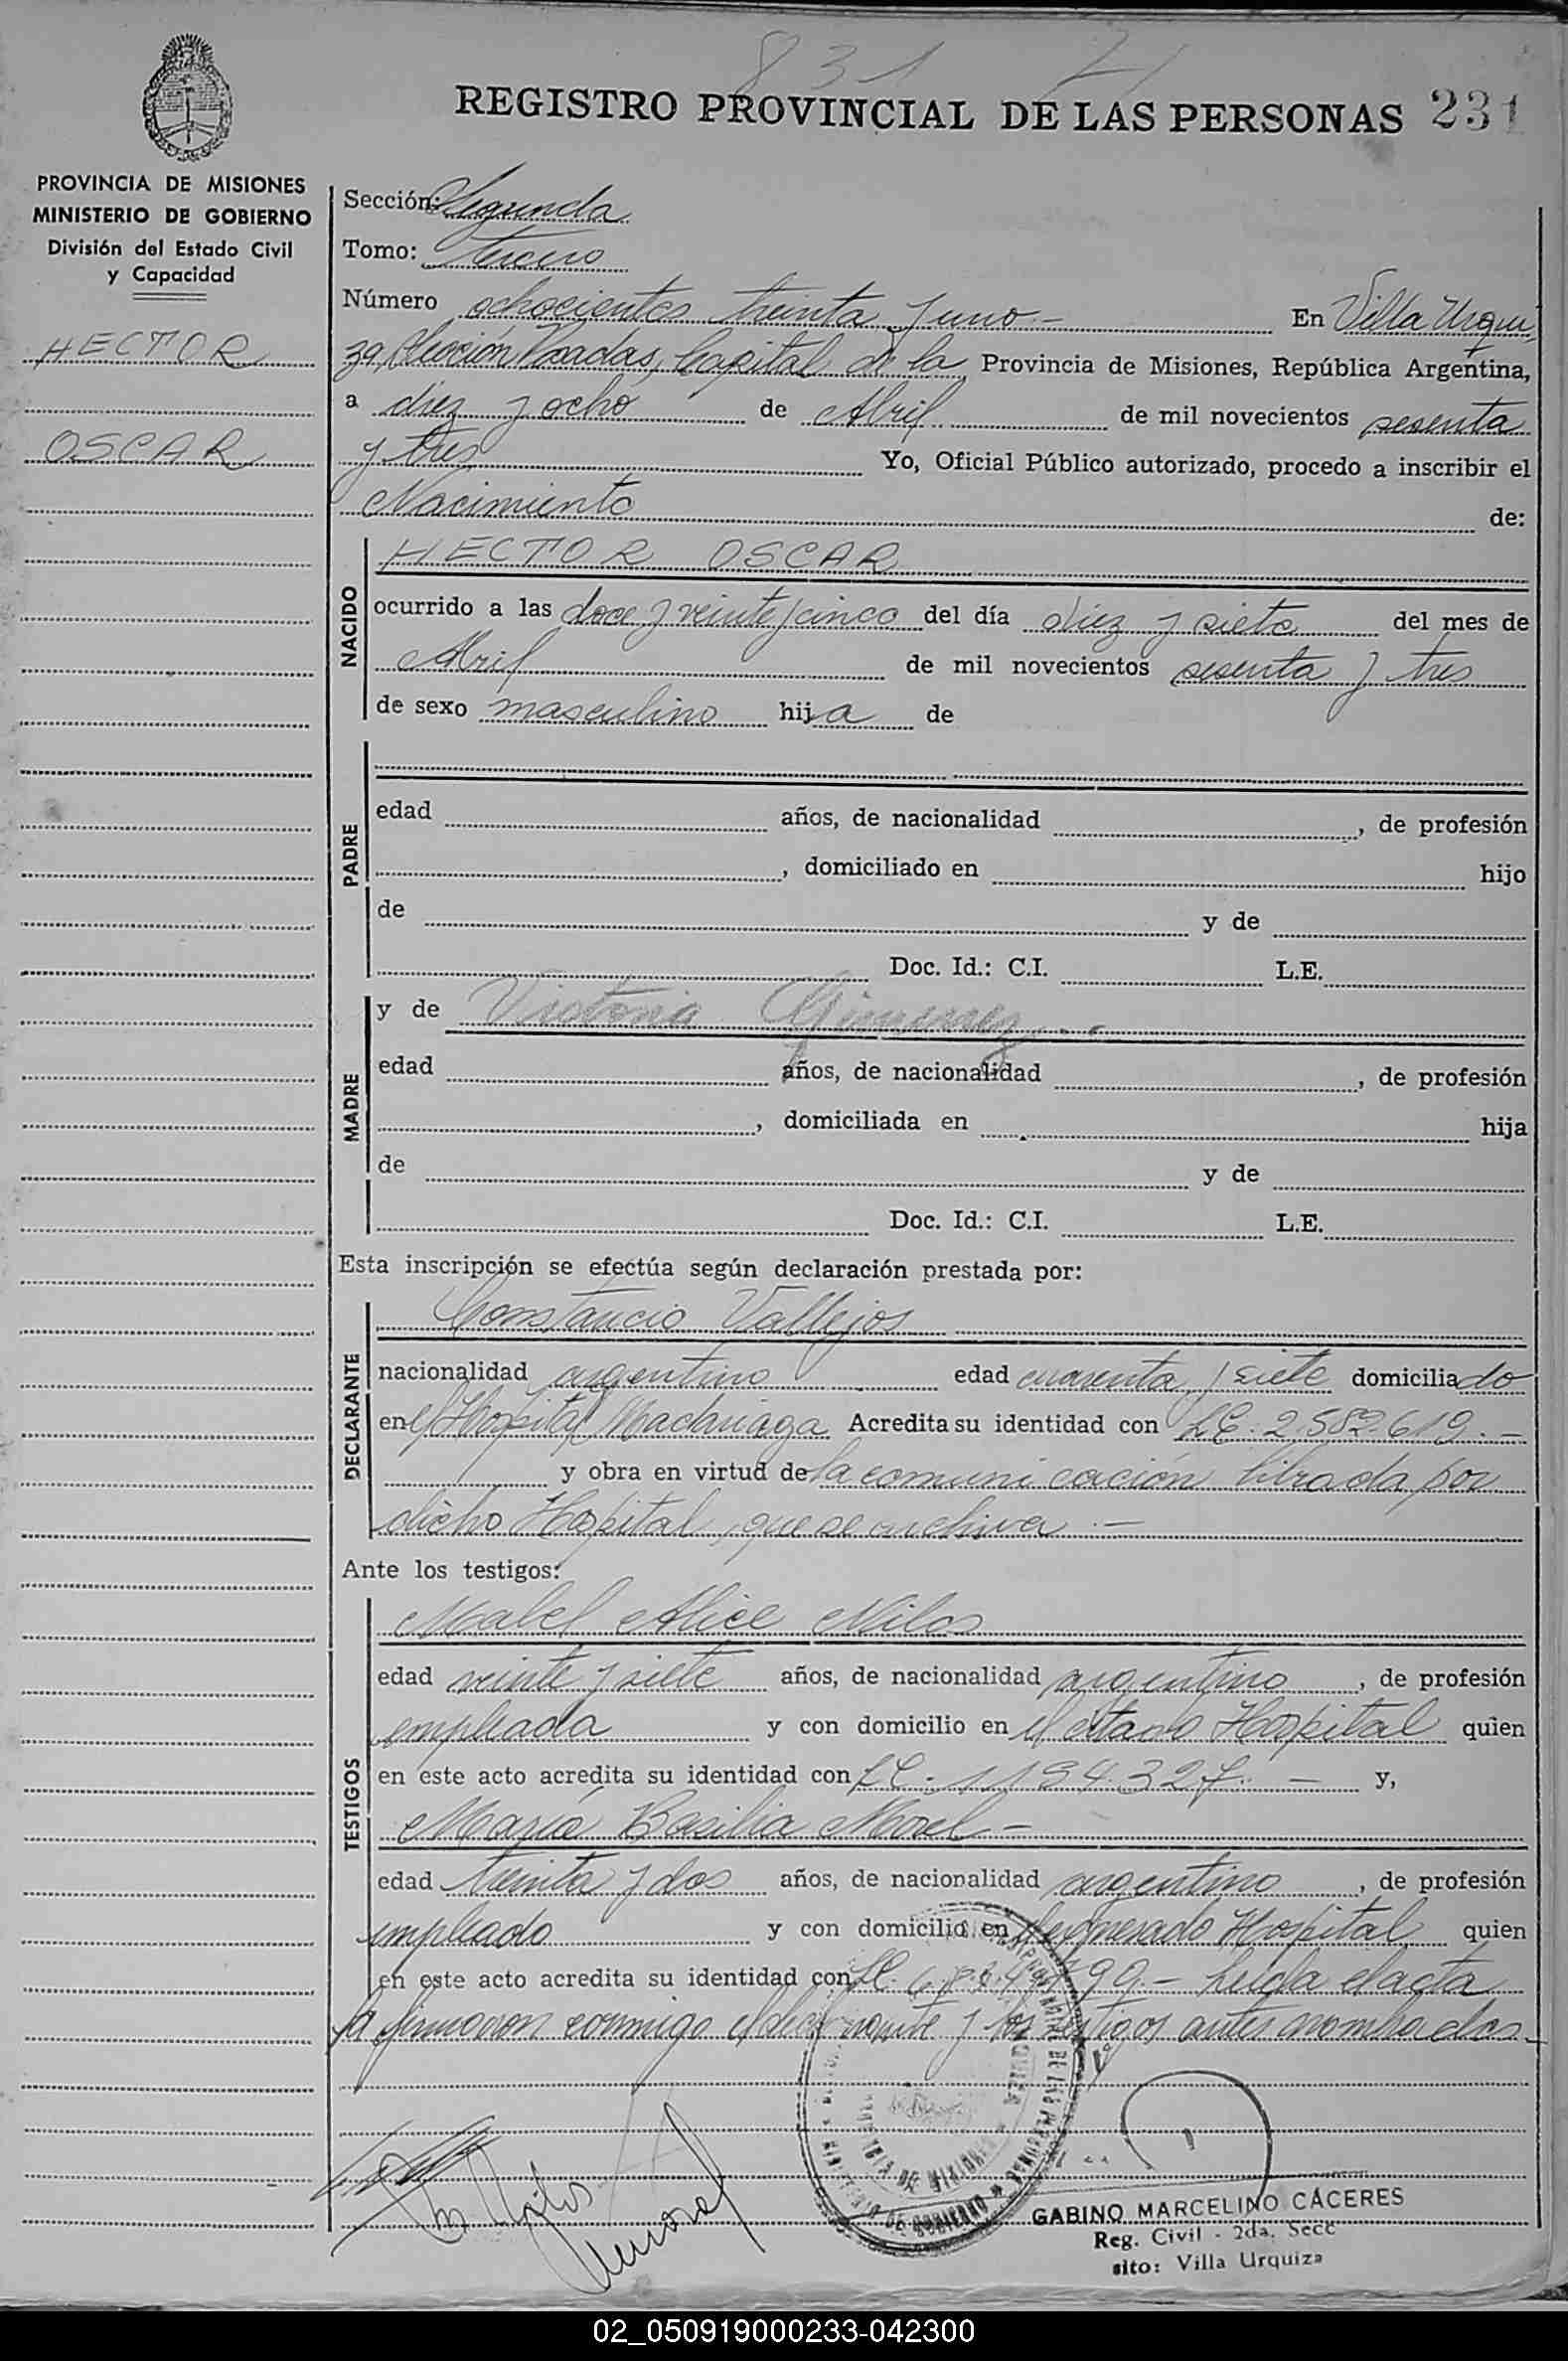 831
REGISTRO PROVINCIAL DE LAS PERSONAS 231
PROVINCIA DE MISIONES
MINISTERIO DE GOBIERNO
División del Estado Civil
y Capacidad
HECTOR
OSCAR
Sección: Segunda
Tomo: tercero
Número ochocientos treinta y uno - En Villa Urqui
za, Sección Posadas, Capital de la Provincia de Misiones, República Argentina,
a diez y ocho de Abril de mil novecientos sesenta
y tres Yo, Oficial Público autorizado, procedo a inscribir el
Nacimiento de:
NACIDO
HECTOR OSCAR
ocurrido a las doce y veinte y cinco del día diez y siete del mes de
Abril de mil novecientos sesenta y tres
de sexo masculino hija de
PADRE
edad años, de nacionalidad , de profesión
, domiciliado en hijo
de y de
Doc. Id.: C.I. L.E.
MADRE
y de Victoria Gimenez
edad años, de nacionalidad , de profesión
, domiciliada en hija
de y de
Doc. Id.: C.I. L.E.
Esta inscripción se efectúa según declaración prestada por:
DECLARANTE
Constancio Vallejos
nacionalidad argentino edad cuarenta y siete domiciliado
en el Hospital Madariaga Acredita su identidad con LE. 2.582.619.-
y obra en virtud de la comunicación librada por
dicho Hospital, que se archiva.-
Ante los testigos:
TESTIGOS
Mabel Alice Nilos
edad veinte y siete años, de nacionalidad argentino, de profesión
empleada y con domicilio en el citado Hospital quien
en este acto acredita su identidad con LC. 1194.327.- y,
María Basilia Morel -
edad treinta y dos años, de nacionalidad argentino, de profesión
empleado y con domicilio en el Hospital quien
en este acto acredita su identidad con LC. Leída el acta
la firmaron conmigo el declarante y los testigos antes nombrados.-
GABINO MARCELINO CÁCERES
Reg. Civil - 2da. Secc
sito: Villa Urquiza
02_050919000233-042300